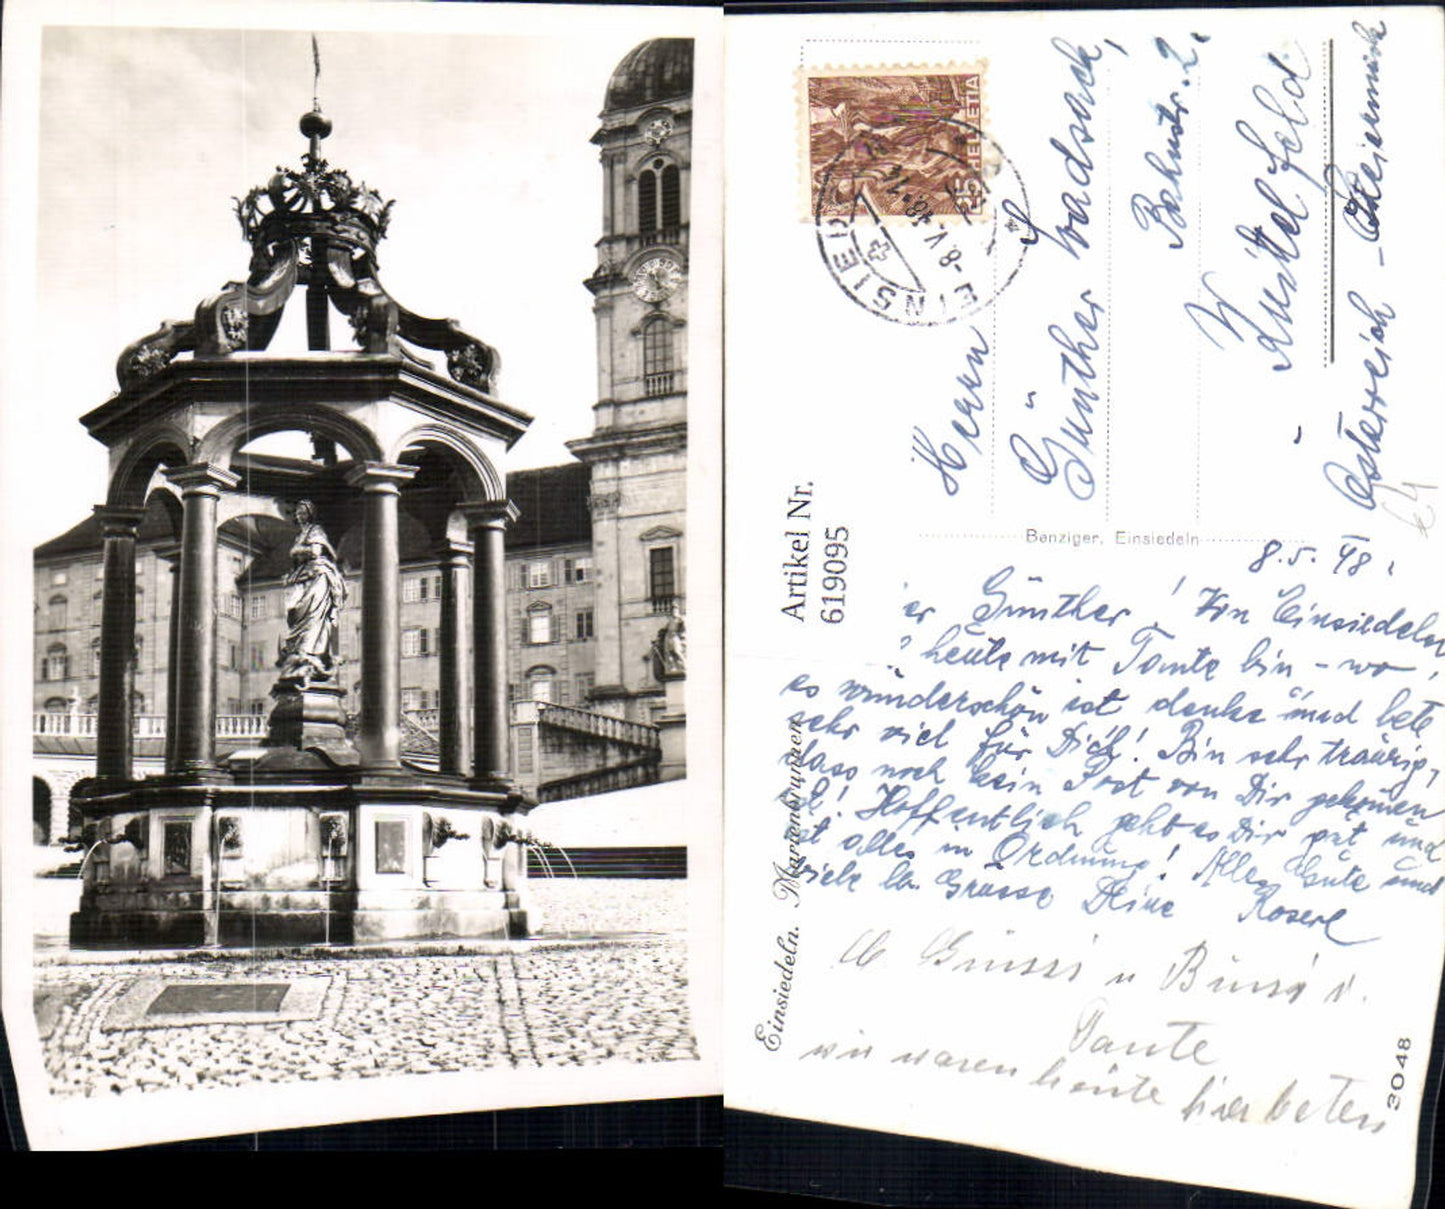 HELVETIA
25
EINSIEDELN
-8.V.48.-14
Herrn
Günther Wadsack,
Bahnstr. 2.
Knittelfeld
Österreich - Steiermark
Artikel Nr.
619095
Benziger, Einsiedeln
8.5.48.
er Günther! Von Einsiedeln
heute mit Tante bin - wo
es wunderschön ist denke und bete
sehr viel für Dich! Bin sehr traurig,
dass noch kein Post von Dir gekommen
ist! Hoffentlich geht es Dir gut und
ist alles in Ordnung! Alles Gute und
viele lb. Grüsse Deine Roserl
Tante
wir waren heute hier beten
Einsiedeln. Marienbrunnen
3048